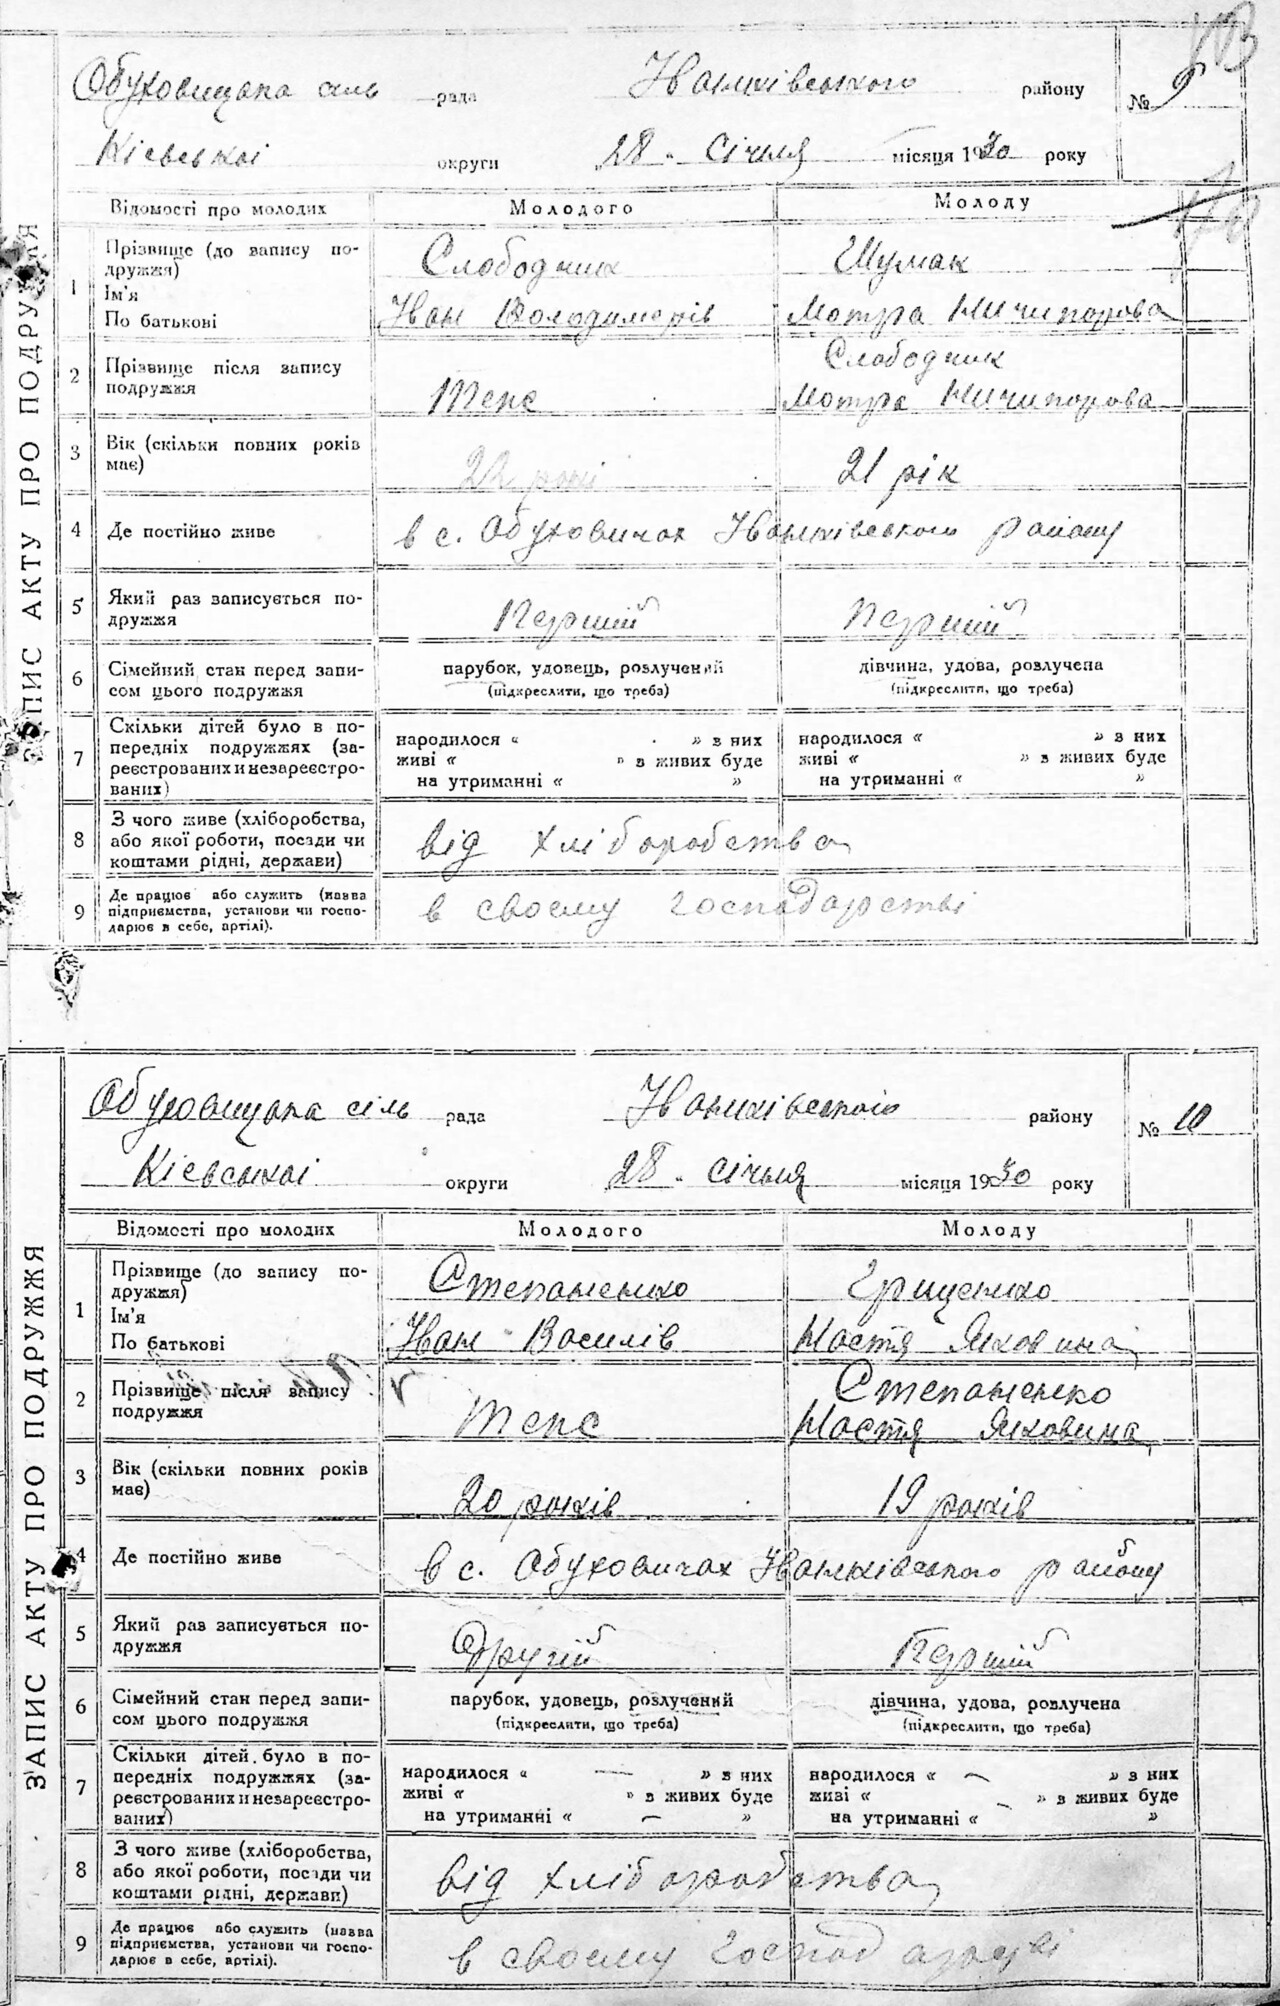 ЗАПИС АКТУ ПРО ПОДРУЖЖЯ
Обуховицька сіль рада Іванківського району № 9
Кієвскоі округи „28" січня місяця 1930 року
Відомості про молодих Молодого Молоду
1 Прізвище (до запису подружжя) Слободник Шумак
Ім'я
По батькові Іван Володимерів Мотра Ничипорова
2 Прізвище після запису подружжя Слободник
Теж Мотра Ничипорова
3 Вік (скільки повних років має) 22 рокі 21 рік
4 Де постійно живе в с. Обуховичах Іванківського району
5 Який раз записується подружжя Перший Перший
6 Сімейний стан перед записом цього подружжя парубок, удовець, розлучений дівчина, удова, розлучена
(підкреслити, що треба) (підкреслити, що треба)
7 Скільки дітей було в попередніх подружжях (зареєстрованих и незареєстрованих)
народилося « » з них народилося « » з них
живі « » в живих буде живі « » в живих буде
на утриманні « » на утриманні « »
8 З чого живе (хліборобства, або якої роботи, посади чи коштами рідні, держави) від хліборобства
9 Де працює або служить (назва підприємства, установи чи господарює в себе, артілі). в своєму господарстві
ЗАПИС АКТУ ПРО ПОДРУЖЖЯ
Обуховицька сіль рада Іванківского району № 10
Кієвськоі округи 28 січня місяця 1930 року
Відомості про молодих Молодого Молоду
1 Прізвище (до запису подружжя) Степаненко Грищенко
Ім'я
По батькові Іван Василів Настя Яковина
2 Прізвище після запису подружжя Степаненко
Теж Настя Яковина
3 Вік (скільки повних років має) 20 років 19 років
4 Де постійно живе в с. Обуховичах Іванківського району
5 Який раз записується подружжя Другій Перший
6 Сімейний стан перед записом цього подружжя парубок, удовець, розлучений дівчина, удова, розлучена
(підкреслити, що треба) (підкреслити, що треба)
7 Скільки дітей було в попередніх подружжях (зареєстрованих и незареєстрованих)
народилося « — » з них народилося « — » з них
живі « » в живих буде живі « — » в живих буде
на утриманні « — » на утриманні « »
8 З чого живе (хліборобства, або якої роботи, посади чи коштами рідні, держави) від хліборобства
9 Де працює або служить (назва підприємства, установи чи господарює в себе, артілі). в своєму